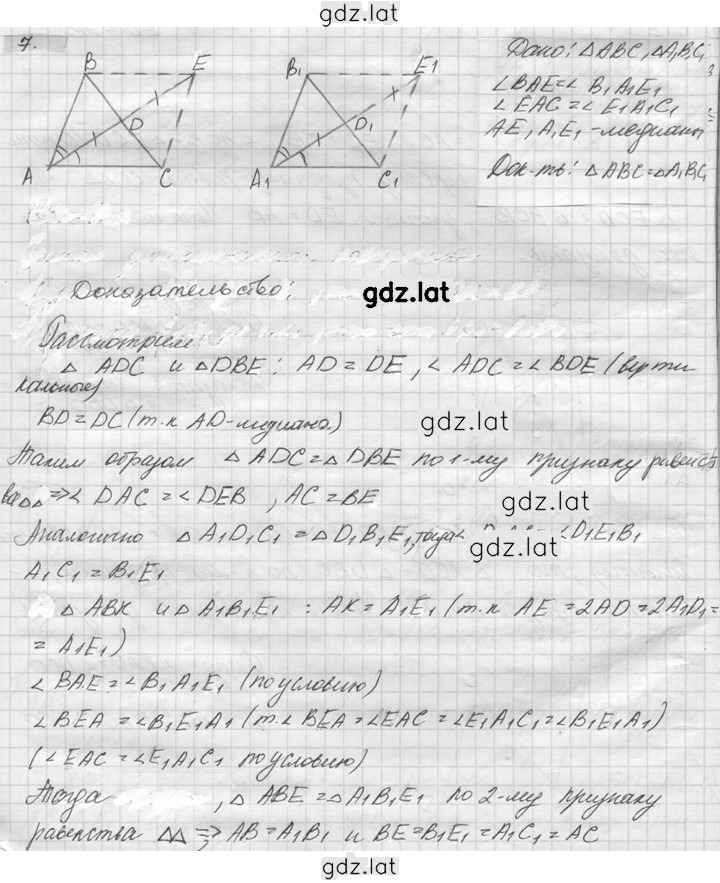 gdz.lat
7.
B E B1 E1
D D1
A C A1 C1
Дано: △ABC, △A1B1C1
∠BAE=∠B1A1E1
∠EAC=∠E1A1C1
AE, A1E1-медианы
Док-ть: △ABC=△A1B1C1
Доказательство:
gdz.lat
Рассмотрим
△ ADC и △DBE: AD=DE, ∠ADC=∠BDE (верти
кальные)
BD=DC (т.к AD-медиана)
gdz.lat
Таким образом △ADC=△DBE по 1-му признаку равенст
ва △△ =>∠DAC=∠DEB, AC=BE
gdz.lat
Аналогично △A1D1C1=△D1B1E1, тогда ∠D1E1B1
gdz.lat
A1C1=B1E1
△ABK и △A1B1E1: AK=A1E1 (т.к AE=2AD=2A1D1=
=A1E1)
∠BAE=∠B1A1E1 (по условию)
∠BEA=∠B1E1A1 (т.∠BEA=∠EAC=∠E1A1C1=∠B1E1A1)
(∠EAC=∠E1A1C1 по условию)
Тогда , △ABE=△A1B1E1 по 2-му признаку
равенства △△ => AB=A1B1 и BE=B1E1=A1C1=AC
gdz.lat